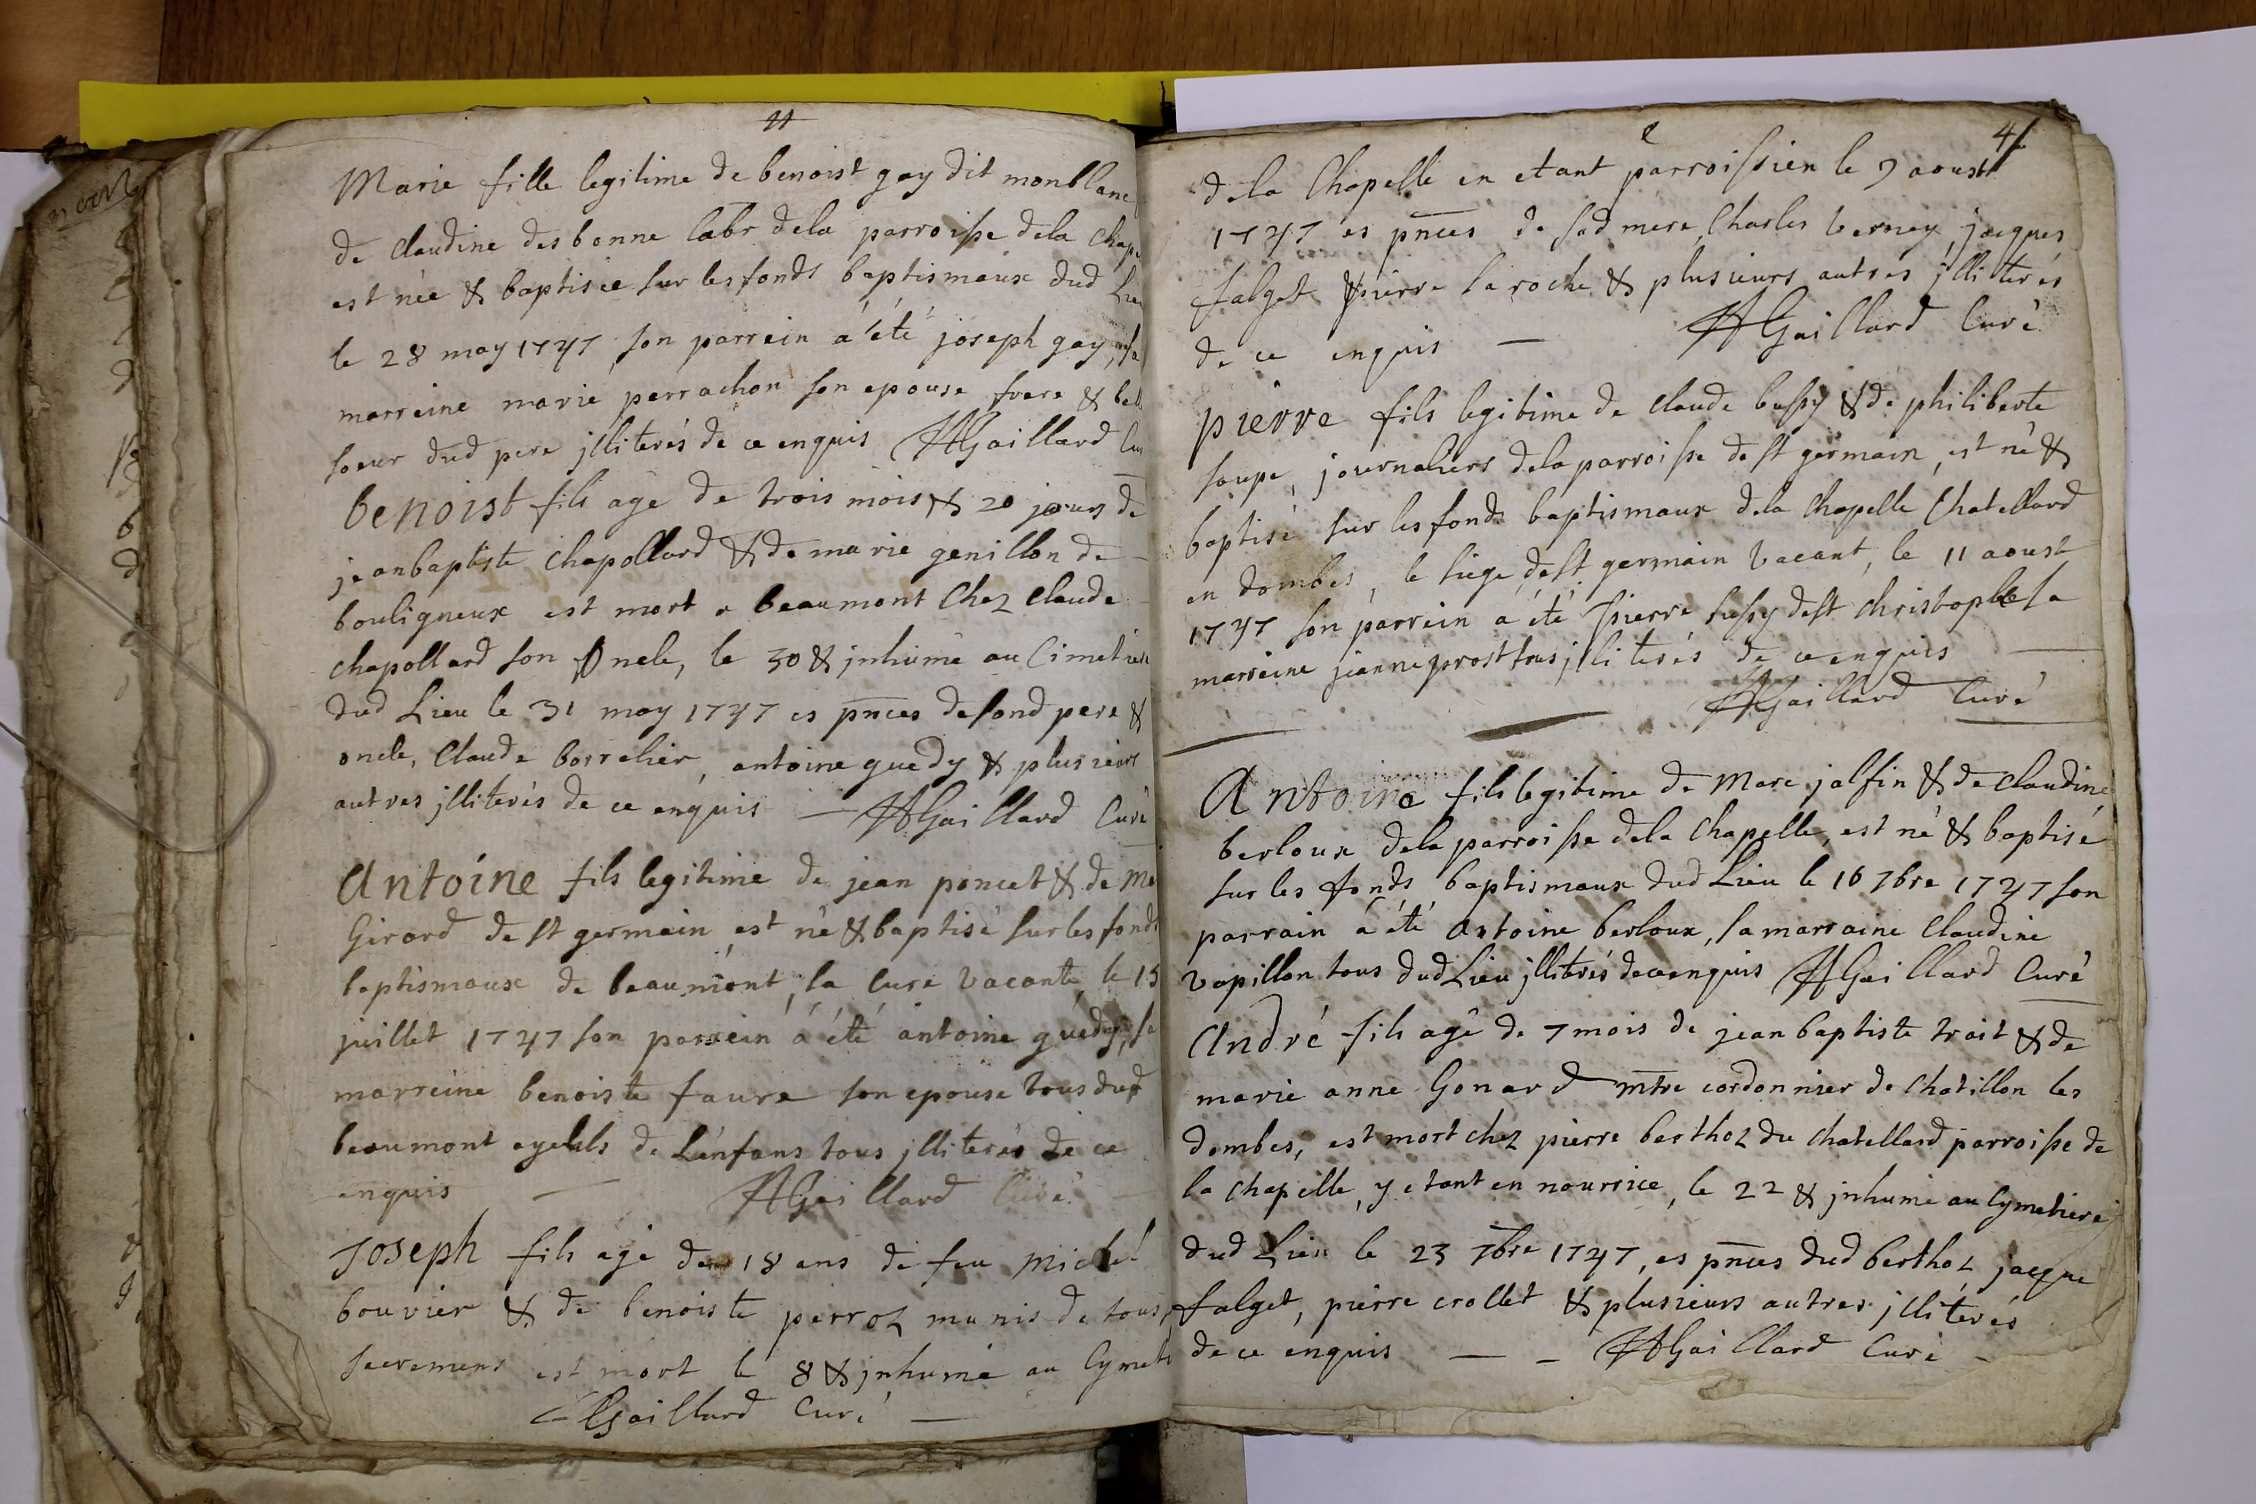 11
Marie fille legitime de benoist gay dit monblanc
de claudine desbonne labr dela parroisse dela chape
est née & baptisée sur les fonds baptismaux dud Lieu
le 28 may 1747 son parrein á été joseph gay, & sa
marreine marie perrachon son epouse frere & bel
soeur dud pere jlliterés de ce enquis AGaillard Cu
benoist fils agé de trois mois & 20 jours de
jeanbaptiste chapollard & de marie genillon de
bouligneux est mort a beaumont chez claude
chapollard son oncle, le 30 & jnhumé au Cimetiere
dud Lieu le 31 may 1747 es pnces desond pere &
oncle, Claude borrelier, antoine guedy & plusieurs
autres jlliterés de ce enquis — AGaillard Curé
Antoine fils legitime de jean poncet & de Ma
Girard de st germain est né & baptisé sur les fonds
baptismaux de beaumont, la Cure vacante, le 15
juillet 1747 son parrein á été antoine guedy, sa
marreine benoiste faure son epouse tous dud
beaumont ayeuls de L'enfans tous jlliterés de ce
enquis — AGaillard Curé
Joseph fils agé de 18 ans de feu Michel
bouvier & de benoiste perroz munis de tous
sacremens est mort le 8 & jnhumé au Cymeti
AGaillard Curé —
41
dela Chapelle en etant parroissien le 9 aoust
1747 es pnces de sad mere, Charles verney, jacques
falget & pierre la roche & plusieurs autres jlliterés
de ce enquis — AGaillard Curé
pierre fils legitime de claude bussy & de philiberte
soupe, journaliers dela parroisse de st germain, est né &
baptisé sur les fonds baptismaux dela Chapelle Chatellard
en dombes, le siege de st germain Vacant, le 11 aoust
1747 son parrein a été pierre bussy de st christophle sa
marreine jeanne prost tous jlliterés de ce enquis —
AGaillard Curé
Antoine fils legitime de Marc jalfin & de claudine
berloux dela parroisse dela Chapelle, est né & baptisé
sur les fonds baptismaux dud Lieu le 16 7bre 1747 son
parrain á été antoine berloux, sa marraine Claudine
vapillon tous dud Lieu jllitrés de ce enquis AGaillard Curé
André fils agé de 7 mois de jean baptiste trait & de
marie anne Gonard mtre cordonnier de Chatillon les
dombes, est mort chez pierre berthoz du chatellard parroisse de
la chapelle, y etant en nourrice, le 22 & jnhumé au Cymetiere
dud Lieu le 23 7bre 1747, es pnces dud berthoz, jacque
falget, pierre crollet & plusieurs autres jlliterés
de ce enquis — — AGaillard Curé —